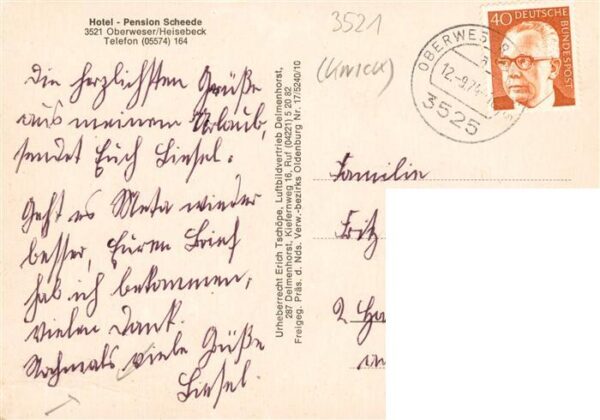 Hotel - Pension Scheede
3521 Oberweser/Heisebeck
Telefon (05574) 164
Die herzlichsten Grüße
aus meinem Urlaub,
sendet Euch Liesel.
Geht es Meta wieder
besser, Euren Brief
hab ich bekommen,
vielen Dank.
Nochmals viele Grüße
Liesel.
Urheberrecht Erich Tschöpe, Luftbildvertrieb Delmenhorst,
287 Delmenhorst, Kiefernweg 16, Ruf (04221) 5 20 82
Freigeg. Präs. d. Nds. Verw.-bezirks Oldenburg Nr. 17/5240/10
3521
OBERWESER
12.-9.74
3525
40 DEUTSCHE
BUNDESPOST
Familie
Fritz
2